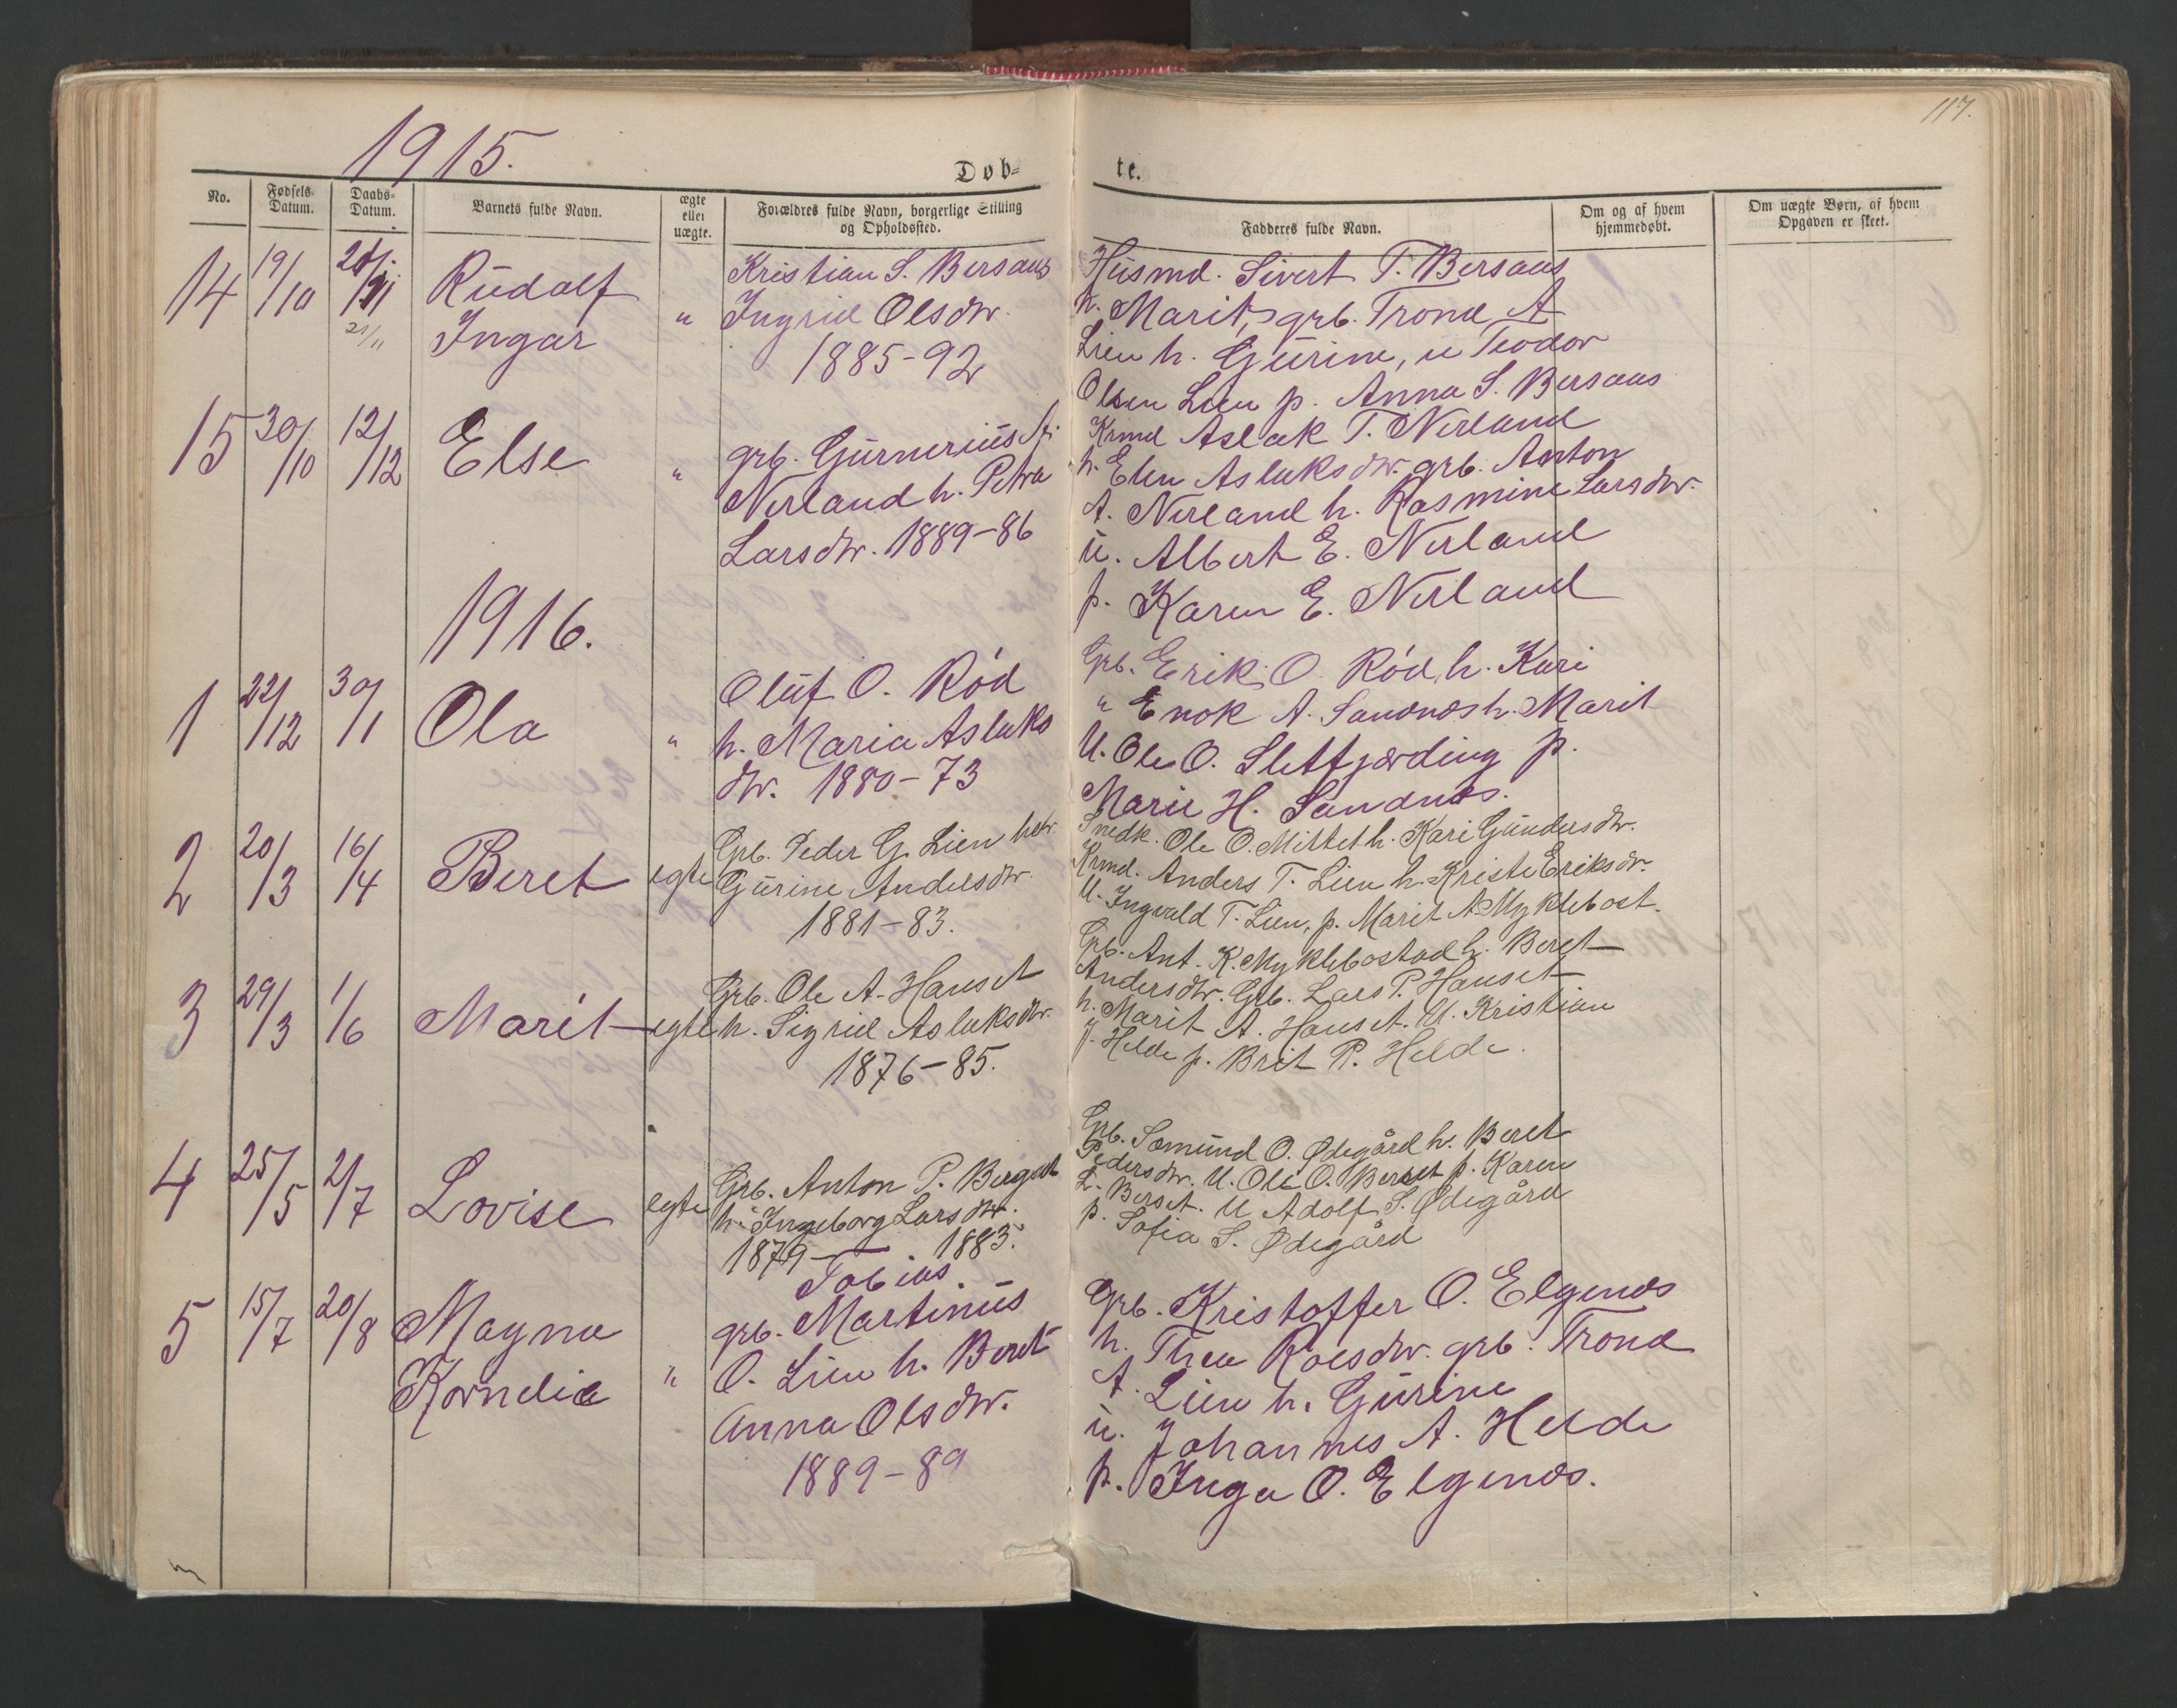 117.
1915.
Døb-
te.
No.
Fødsels-
Datum.
Daabs-
Datum.
Barnets fulde Navn.
ægte
eller
uægte.
Forældres fulde Navn, borgerlige Stilling
og Opholdssted.
Fadderes fulde Navn.
Om og af hvem
hjemmedøbt.
Om uægte Børn, af hvem
Opgaven er skeet.
14 19/10 Rudolf
21/11
Ingar
"
Kristian S. Bersaas
Ingrid Olsdtr.
1885-92
Husmd. Sivert T. Bersaas
h. Marit, grb. Trond A
Lien h. Gurine, u Teodor
Olsen Lien p. Anna S. Bersaas
15 30/10 12/12 Else "
grb. Gurnerius A.
Nerland h. Petra
Larsdtr. 1889-86
Krmd Aslak T. Nerland
h. Elen Aslaksdtr. grb. Anton
A. Nerland h. Rasmine Larsdtr.
u. Albert E. Nerland
p. Karen E. Nerland
1916.
1 22/12 30/1 Ola "
Oluf O. Rød
h. Maria Aslaks
dtr. 1880-73
Grb. Erik O. Rød, h. Kari
" Enok A. Sandnes h. Marit
U. Ole O. Sletfjærding p.
Marie H. Sandnes.
2 20/3 16/4 Beret egte
Grb. Peder G. Lien h
Gurine Andersdtr.
1881-83.
Snedk. Ole O. Mittet h. Kari Gundersdtr.
Krmd. Anders T. Lien h. Kristi Eriksdtr.
U. Ingvald T. Lien, p. Marit A Myklebost.
3 29/3 1/6 Marit egte
Grb. Ole A. Hauset
h. Sigrid Aslaksdtr.
1876-85.
Grb. Ant. K. Myklebostad h. Beret
Andersdtr. Grb. Lars P. Hauset
h. Marit A. Hauset. U. Kristian
J. Helde p. Brit P. Helde.
4 25/5 2/7 Lovise egte
Grb. Anton P. Berget
h. Ingeborg Larsdtr.
1879- 1883.
Grb. Somund O. Ødegård h. Beret
Pedersdtr. U. Ole O. Berset p. Karen
L. Berset. U Adolf S. Ødegård
p. Sofia S. Ødegård
5 15/7 20/8 Magna
Kornelia
"
Tobias
grb. Martinus
O. Lien h. Beret
Anna Olsdtr.
1889-89
Grb. Kristoffer O. Elgenes
h. Thea Roesdtr. grb. Trond
A. Lien h. Gurine
u. Johannes A. Helde
p. Inga O. Elgenes.